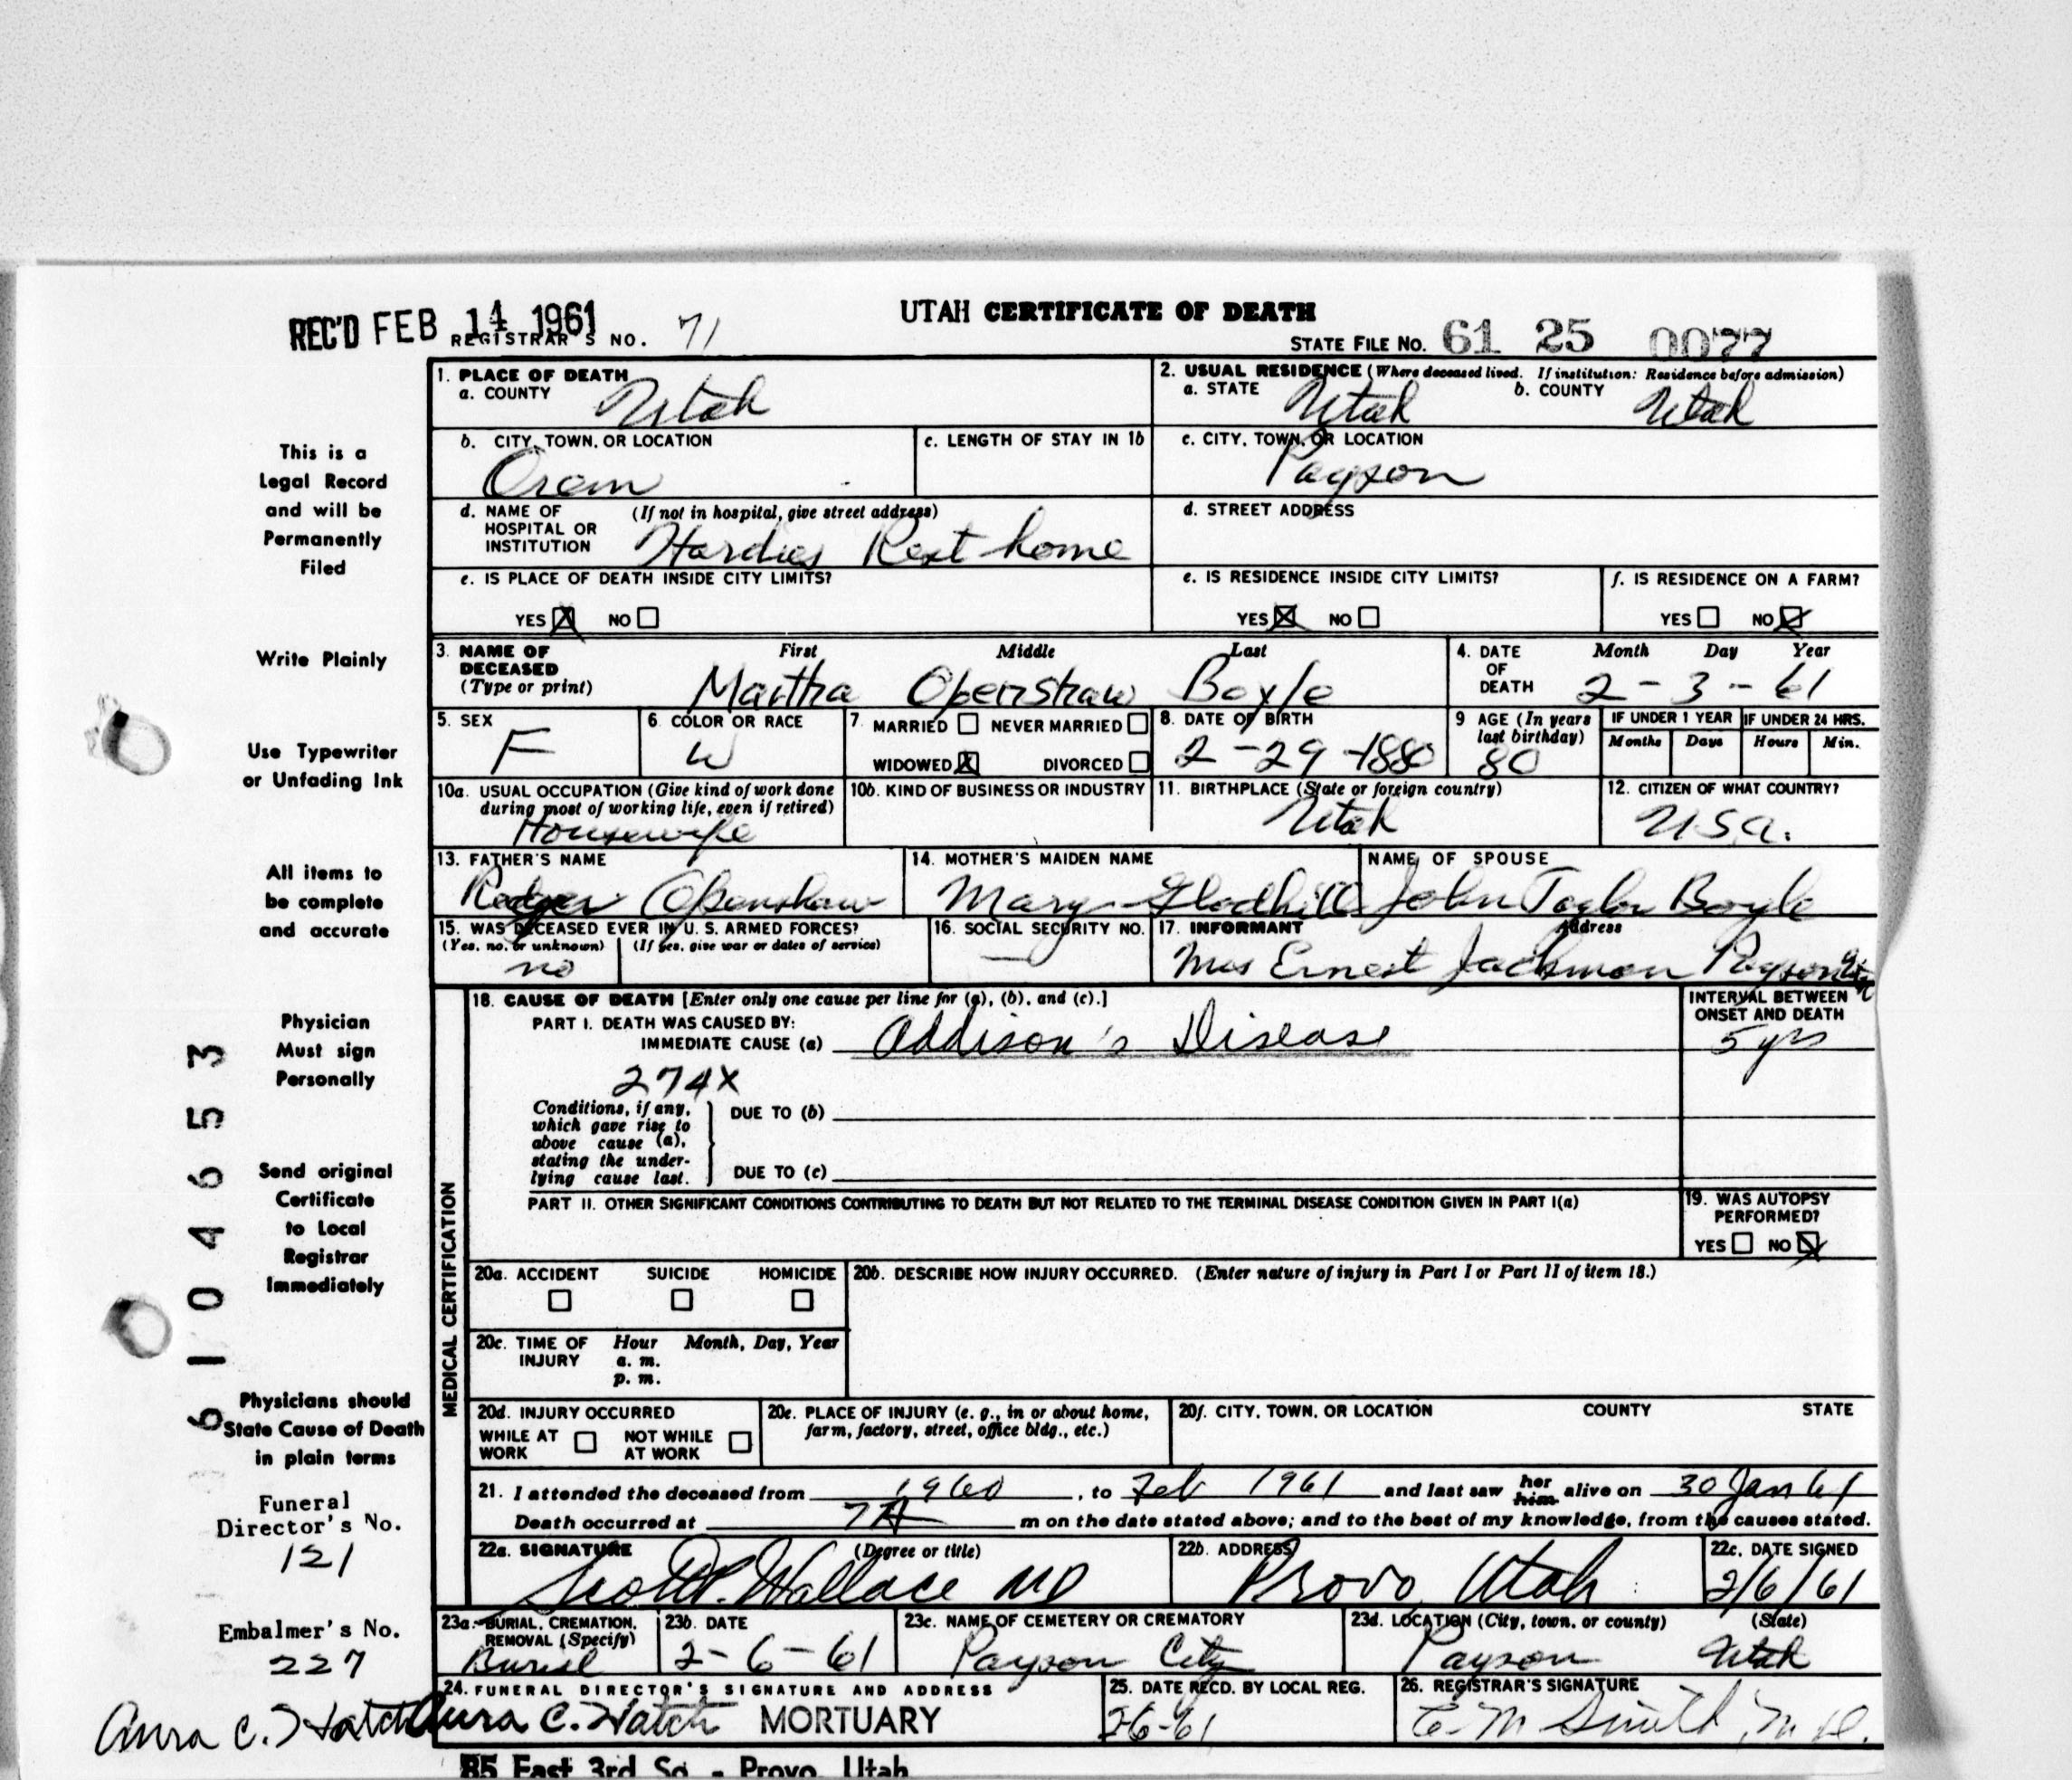 UTAH CERTIFICATE OF DEATH
REC'D FEB 14 1961
REGISTRAR'S NO. 71
STATE FILE NO. 61 25 0077
1. PLACE OF DEATH
a. COUNTY Utah
2. USUAL RESIDENCE (Where deceased lived. If institution: Residence before admission)
a. STATE Utah b. COUNTY Utah
b. CITY, TOWN, OR LOCATION Orem
c. LENGTH OF STAY IN 1b
c. CITY, TOWN, OR LOCATION Payson
d. NAME OF HOSPITAL OR INSTITUTION (If not in hospital, give street address) Hardies Rest home
d. STREET ADDRESS
e. IS PLACE OF DEATH INSIDE CITY LIMITS?
YES X NO
e. IS RESIDENCE INSIDE CITY LIMITS?
YES X NO
f. IS RESIDENCE ON A FARM?
YES NO X
3. NAME OF DECEASED (Type or print) First Middle Last
Martha Openshaw Boyle
4. DATE OF DEATH Month Day Year
2-3-61
5. SEX F
6. COLOR OR RACE W
7. MARRIED NEVER MARRIED
WIDOWED X DIVORCED
8. DATE OF BIRTH 2-29-1880
9 AGE (In years last birthday) 80
IF UNDER 1 YEAR Months Days
IF UNDER 24 HRS. Hours Min.
10a. USUAL OCCUPATION (Give kind of work done during most of working life, even if retired) Housewife
10b. KIND OF BUSINESS OR INDUSTRY
11. BIRTHPLACE (State or foreign country) Utah
12. CITIZEN OF WHAT COUNTRY? U.S.A.
13. FATHER'S NAME Openshaw
14. MOTHER'S MAIDEN NAME Mary Gledhill
NAME OF SPOUSE John Taylor Boyle
15. WAS DECEASED EVER IN U. S. ARMED FORCES?
(Yes, no, or unknown) (If yes, give war or dates of service)
no
16. SOCIAL SECURITY NO. —
17. INFORMANT Address
Mrs Ernest Jackman Payson
MEDICAL CERTIFICATION
18. CAUSE OF DEATH [Enter only one cause per line for (a), (b), and (c).]
PART I. DEATH WAS CAUSED BY:
IMMEDIATE CAUSE (a) Addison's Disease
INTERVAL BETWEEN ONSET AND DEATH
5 yrs
274X
Conditions, if any, which gave rise to above cause (a), stating the underlying cause last.
DUE TO (b)
DUE TO (c)
PART II. OTHER SIGNIFICANT CONDITIONS CONTRIBUTING TO DEATH BUT NOT RELATED TO THE TERMINAL DISEASE CONDITION GIVEN IN PART I(a)
19. WAS AUTOPSY PERFORMED?
YES NO X
20a. ACCIDENT SUICIDE HOMICIDE
20b. DESCRIBE HOW INJURY OCCURRED. (Enter nature of injury in Part I or Part II of item 18.)
20c. TIME OF INJURY Hour Month, Day, Year
a. m.
p. m.
20d. INJURY OCCURRED
WHILE AT WORK NOT WHILE AT WORK
20e. PLACE OF INJURY (e. g., in or about home, farm, factory, street, office bldg., etc.)
20f. CITY, TOWN, OR LOCATION COUNTY STATE
21. I attended the deceased from 1960, to Feb 1961 and last saw her him alive on 30 Jan 61
Death occurred at 7A m on the date stated above; and to the best of my knowledge, from the causes stated.
22a. SIGNATURE (Degree or title)
Scott P. Wallace MD
22b. ADDRESS Provo, Utah
22c. DATE SIGNED 2/6/61
23a. BURIAL, CREMATION, REMOVAL (Specify) Burial
23b. DATE 2-6-61
23c. NAME OF CEMETERY OR CREMATORY Payson City
23d. LOCATION (City, town, or county) (State)
Payson Utah
24. FUNERAL DIRECTOR'S SIGNATURE AND ADDRESS
Aura C. Hatch Aura C. Hatch MORTUARY
85 East 3rd So. - Provo, Utah
25. DATE RECD. BY LOCAL REG. 2-6-61
26. REGISTRAR'S SIGNATURE
C. M Smith, M.D.
This is a
Legal Record
and will be
Permanently
Filed
Write Plainly
Use Typewriter
or Unfading Ink
All items to
be complete
and accurate
Physician
Must sign
Personally
Send original
Certificate
to Local
Registrar
Immediately
Physicians should
State Cause of Death
in plain terms
Funeral
Director's No.
121
Embalmer's No.
227
6104653